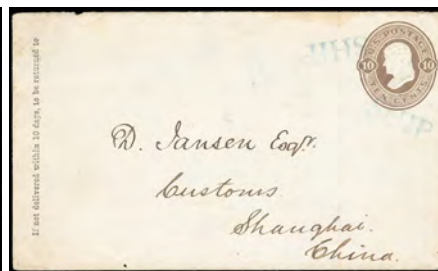 If not delivered within 10 days, to be returned to
U.S. POSTAGE
10 10
TEN CENTS
SHIP
D. Jansen Esqr.
Customs
Shanghai.
China.